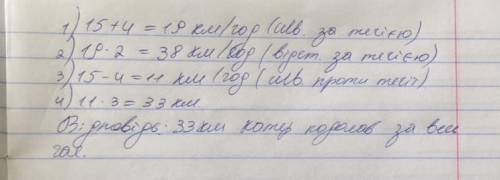 1) 15+4 = 19 км/год (шв. за течією)
2) 19·2 = 38 км/год (відст. за течією)
3) 15-4 = 11 км/год (шв. проти течії)
4) 11·3 = 33 км.
Відповідь: 33 км катер подолав за весь
час.